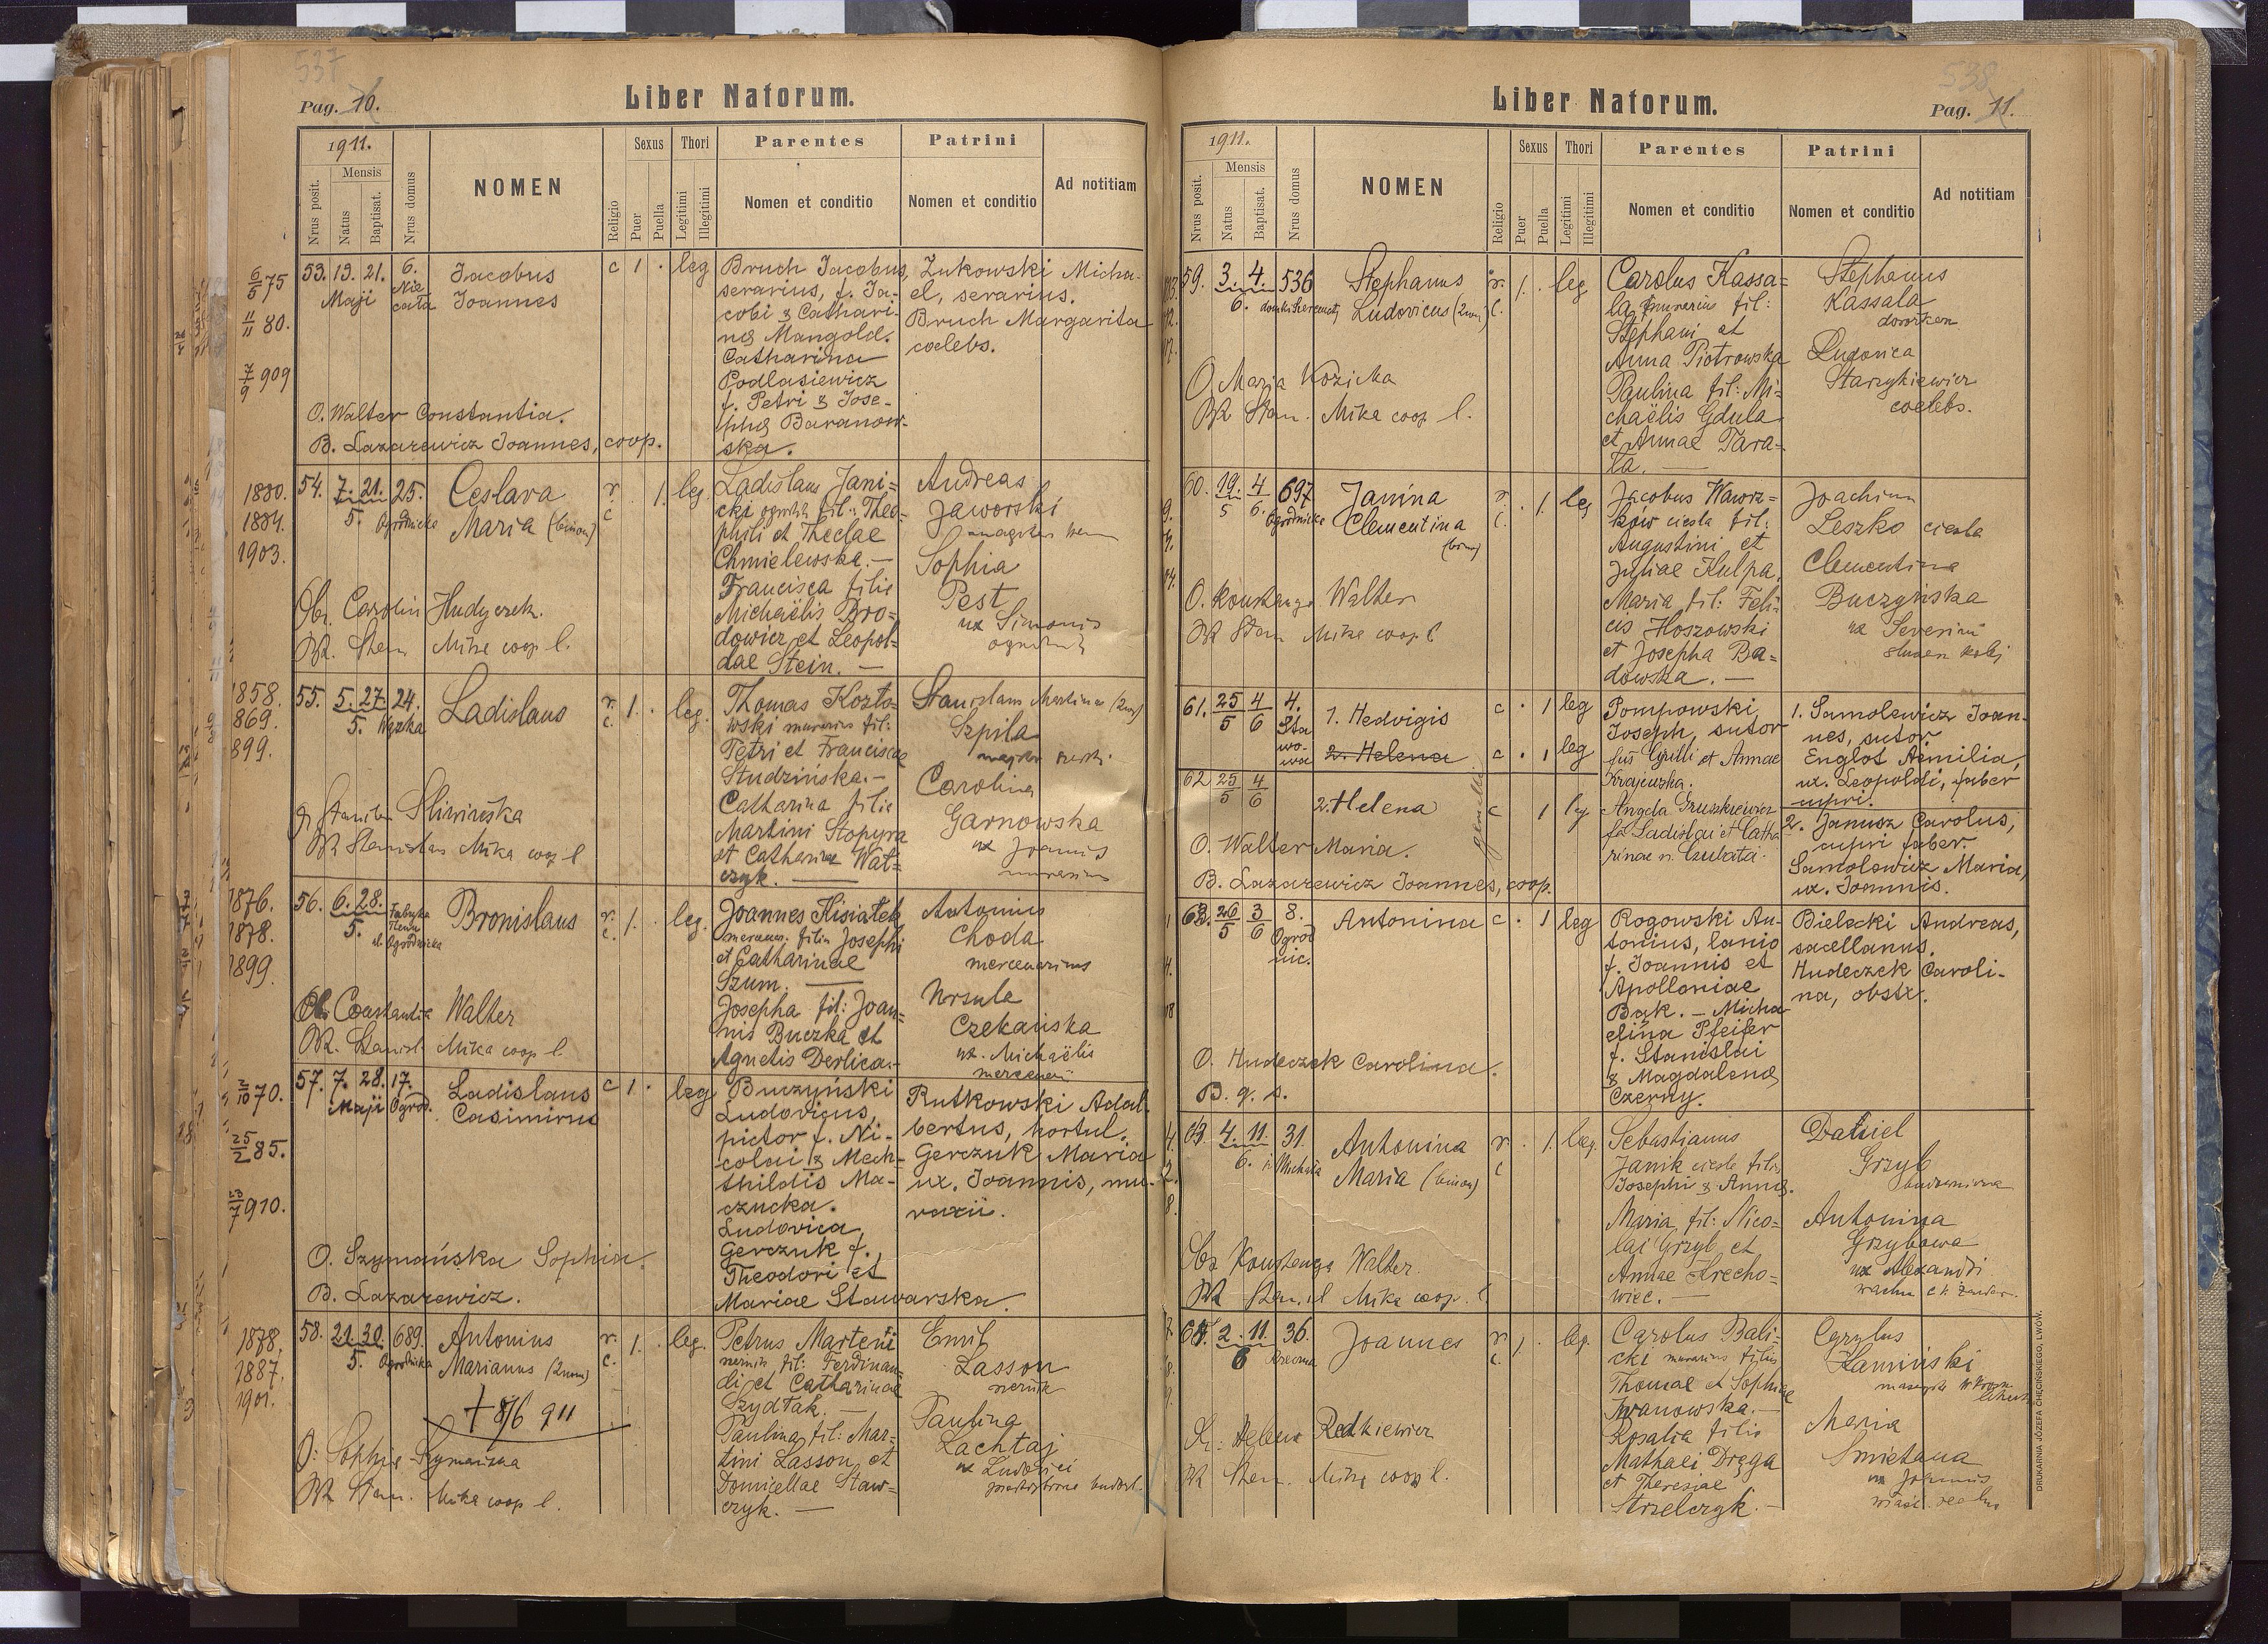 537
Pag. 10.
Liber Natorum.
1911.
Nrus posit.
Mensis
Natus
Baptisat.
Nrus domus
NOMEN
Religio
Sexus
Puer
Puella
Thori
Legitimi
Illegitimi
Parentes
Nomen et conditio
Patrini
Nomen et conditio
Ad notitiam
6/5 75
11/11 80.
7/9 909
53. 13. 21. 6.
Maji
Jacobus
Joannes
c 1 . leg
Bruch Jacobus,
serarius, f. Ja-
cobi & Cathari-
nae Mangold.
Catharina
Podlasiewicz
f. Petri & Jose-
phae Baranow-
ska.
Zukowski Micha-
el, serarius.
Bruch Margarita
coelebs.
O. Walter Constantia.
B. Lazarewicz Joannes, coop.
1880.
1884.
1903.
54. 7. 21. 25.
5. Ogrodnicka
Ceslava
Maria (binom)
r. c . 1. leg.
Ladislaus Jani-
cki ogrodnik fil: Theo-
phili et Theclae
Chmielewska. —
Francisca filia
Michaëlis Bro=
dowicz et Leopol=
dae Stein. —
Andreas
Jaworski
Sophia
Pest
ux Simonis
Ob. Carolin Hudyczek.
Mika coop l.
1858.
1869.
1899.
55. 5. 27. 24.
5. Wązka
Ladislaus
r. c. 1. . leg.
Thomas Kozło-
wski murarius fil:
Petri et Francisca
Studzińska. —
Catharina filia
Martini Stopyra
et Catharina Wat=
czyk. —
Szpila
Carolina
Garnowska
ux Joannis
murarius
Sliwińska
Stanislaus Mika coop l
1876.
1878.
1899.
56. 6. 28. Fabryka
5. Ogrodnicka
Bronislaus
r. c. 1. . leg.
Joannes Kisiałek
mercen. filius Josephi
et Catharinae
Szum. —
Josepha fil: Joan=
nis Buczka et
Agnetis Derlica. —
Antonius
Choda
mercenarius
Ursula
Czekańska
ux. Michaëlis
Ob. Constantia Walter
Mika coop l.
2/10 70.
25/2 85.
23/7 910.
57. 7. 28. 17.
Maji Ogrod.
Ladislaus
Casimirus
c 1 . leg
Buczyński
Ludovicus,
pictor f. Ni-
colai & Mech-
thildis Ma-
czucka.
Ludovica
Gerczuk f.
Theodori et
Mariae Stawarska.
Rutkowski Adal-
bertus, hortul.
Gerczuk Maria
ux. Joannis, mu-
rarii.
O. Szymańska Sophia.
B. Lazarewicz.
1878.
1887.
1901.
58. 21. 30. 689.
5. Ogrodnicka
Antonius
Marianus (2nom)
+ 8/6 911
r. c. 1. . leg.
Petrus Marteni
fil: Ferdinan=
di et Catharinae
Szydłak. —
Paulina fil: Mar=
tini Lasson et
Domicellae Staw=
czyk. —
Emil
Lasson
Paulina
Lachtaj
ux Ludovici
O: Sophia Szymańska
Mika coop l.
538
Pag. 11.
Liber Natorum.
1911.
Nrus posit.
Mensis
Natus
Baptisat.
Nrus domus
NOMEN
Religio
Sexus
Puer
Puella
Thori
Legitimi
Illegitimi
Parentes
Nomen et conditio
Patrini
Nomen et conditio
Ad notitiam
59. 3. 4. 536
6.
Stephanus
Ludovicus (2nom)
r. c. 1. . leg
Carolus Kassa=
la murarius fil:
Stephani et
Anna Piotrowska
Paulina fil: Mi=
chaëlis Gdula
et Annae Tara=
ta. —
Stephanus
Kassala
Ludovica
Starzykiewicz
coelebs.
O. Maria Kozicka
Stan. Mika coop l.
60. 19. 4 697
5 6. Ogrodnicka
Janina
Clementina
(binom)
r. c. . 1. leg
Jacobus Wawrz=
ków ciesla fil:
Augustini et
Juliae Kulpa.
Maria fil: Feli=
cis Hoszowski
et Josepha Ba=
dowska. —
Joachim
Leszko ciesla
Clementina
Buczyńska
ux Severini
O. Konstanya Walter
Stan Mika coop l
61. 25/5 4/6 4.
Sta
wo-
wa
1. Hedvigis c . 1 leg
2. Helena c . 1 leg
62 25/5 4/6
2. Helena c 1 leg
gemelli
Pompowski
Joseph, sutor
fus Cyrilli et Annae
Krajewska.
Angela Gruszkiewicz
fa Ladislai et Catha-
rinae n. Czubata.
1. Samolewicz Joan-
nes, sutor
Englot Aemilia,
ux. Leopoldi, faber
cupri.
2. Janusz Carolus,
cupri faber.
Samolewicz Maria,
ux. Joannis.
O. Walter Maria.
B. Lazarewicz Joannes, coop.
63. 26/5 3/6 8.
Ogrod
nic.
Antonina
c . 1 leg
Rogowski An-
tonius, lanio
f. Joannis et
Apolloniae
Bąk. — Micha-
elina Pfeifer
f. Stanislai
& Magdalenae
Czerny.
Bielecki Andreas,
sacellanus.
Hudeczek Caroli-
na, obstr.
O. Hudeczek Carolina.
B. q. s.
4. 11. 31.
6.
Antonina
Maria (binom)
r. c . 1. leg.
Sebastianus
Janik ciesla filius
Josephi & Annae.
Maria fil: Nico=
lai Grzyb et
Annae Krecho=
wiec. —
Daniel
Grzyb
Antonina
Grzybowa
ux Alexandri
Walter.
Mika coop. l
2. 11. 36.
6
Joannes
r. c. 1. . leg.
Carolus Bali=
cki murarius filius
Thomae et Sophiae
Iwanowska. —
Rosalia filia
Mathaei Dręga
et Theresiae
Strzelczyk. —
Cyrylus
Kamiński
Maria
Smietana
ux Joannis
Helena Redkiewicz
Mika coop l.
DRUKARNIA JÓZEFA CHĘCIŃSKIEGO, LWÓW.